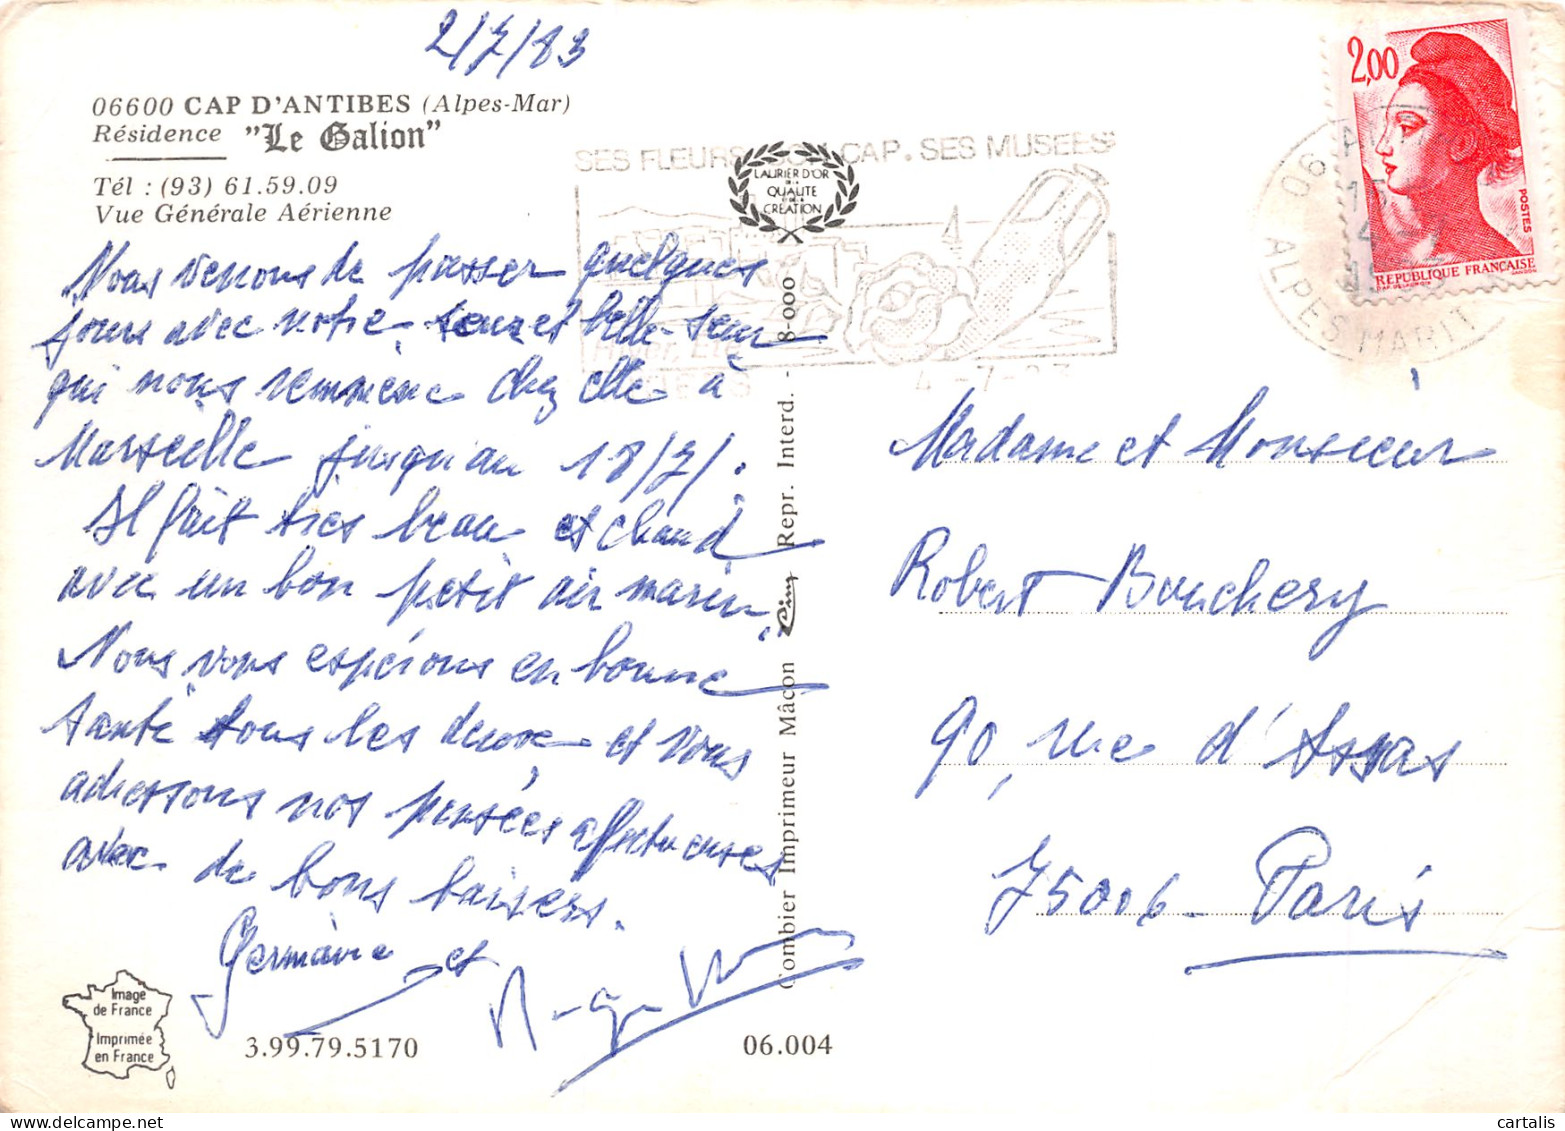 2/7/83
06600 CAP D'ANTIBES (Alpes-Mar)
Résidence "Le Galion"
Tél : (93) 61.59.09
Vue Générale Aérienne
Nous venons de passer quelques
jours avec notre soeur et belle-soeur
qui nous remmène chez elle à
Marseille jusqu'au 18/7/.
Il fait très beau et chaud
avec un bon petit air marin.
Nous vous espérons en bonne
santé tous les deux et vous
adressons nos pensées affectueuses
avec de bons baisers.
Germaine et
Image
de France
Imprimée
en France
3.99.79.5170
06.004
SES FLEURS SON CAP. SES MUSEES
LAURIER D'OR
DE LA
QUALITE
DE LA
CREATION
Hiver. Eté
4-7-83
Combier Imprimeur Mâcon Cim Repr. Interd. - 8-000
2,00
POSTES
REPUBLIQUE FRANÇAISE
06
15
4-7
ALPES MARIT
Madame et Monsieur
Robert Bouchery
90, rue d'Assas
75006 - Paris
cartalis